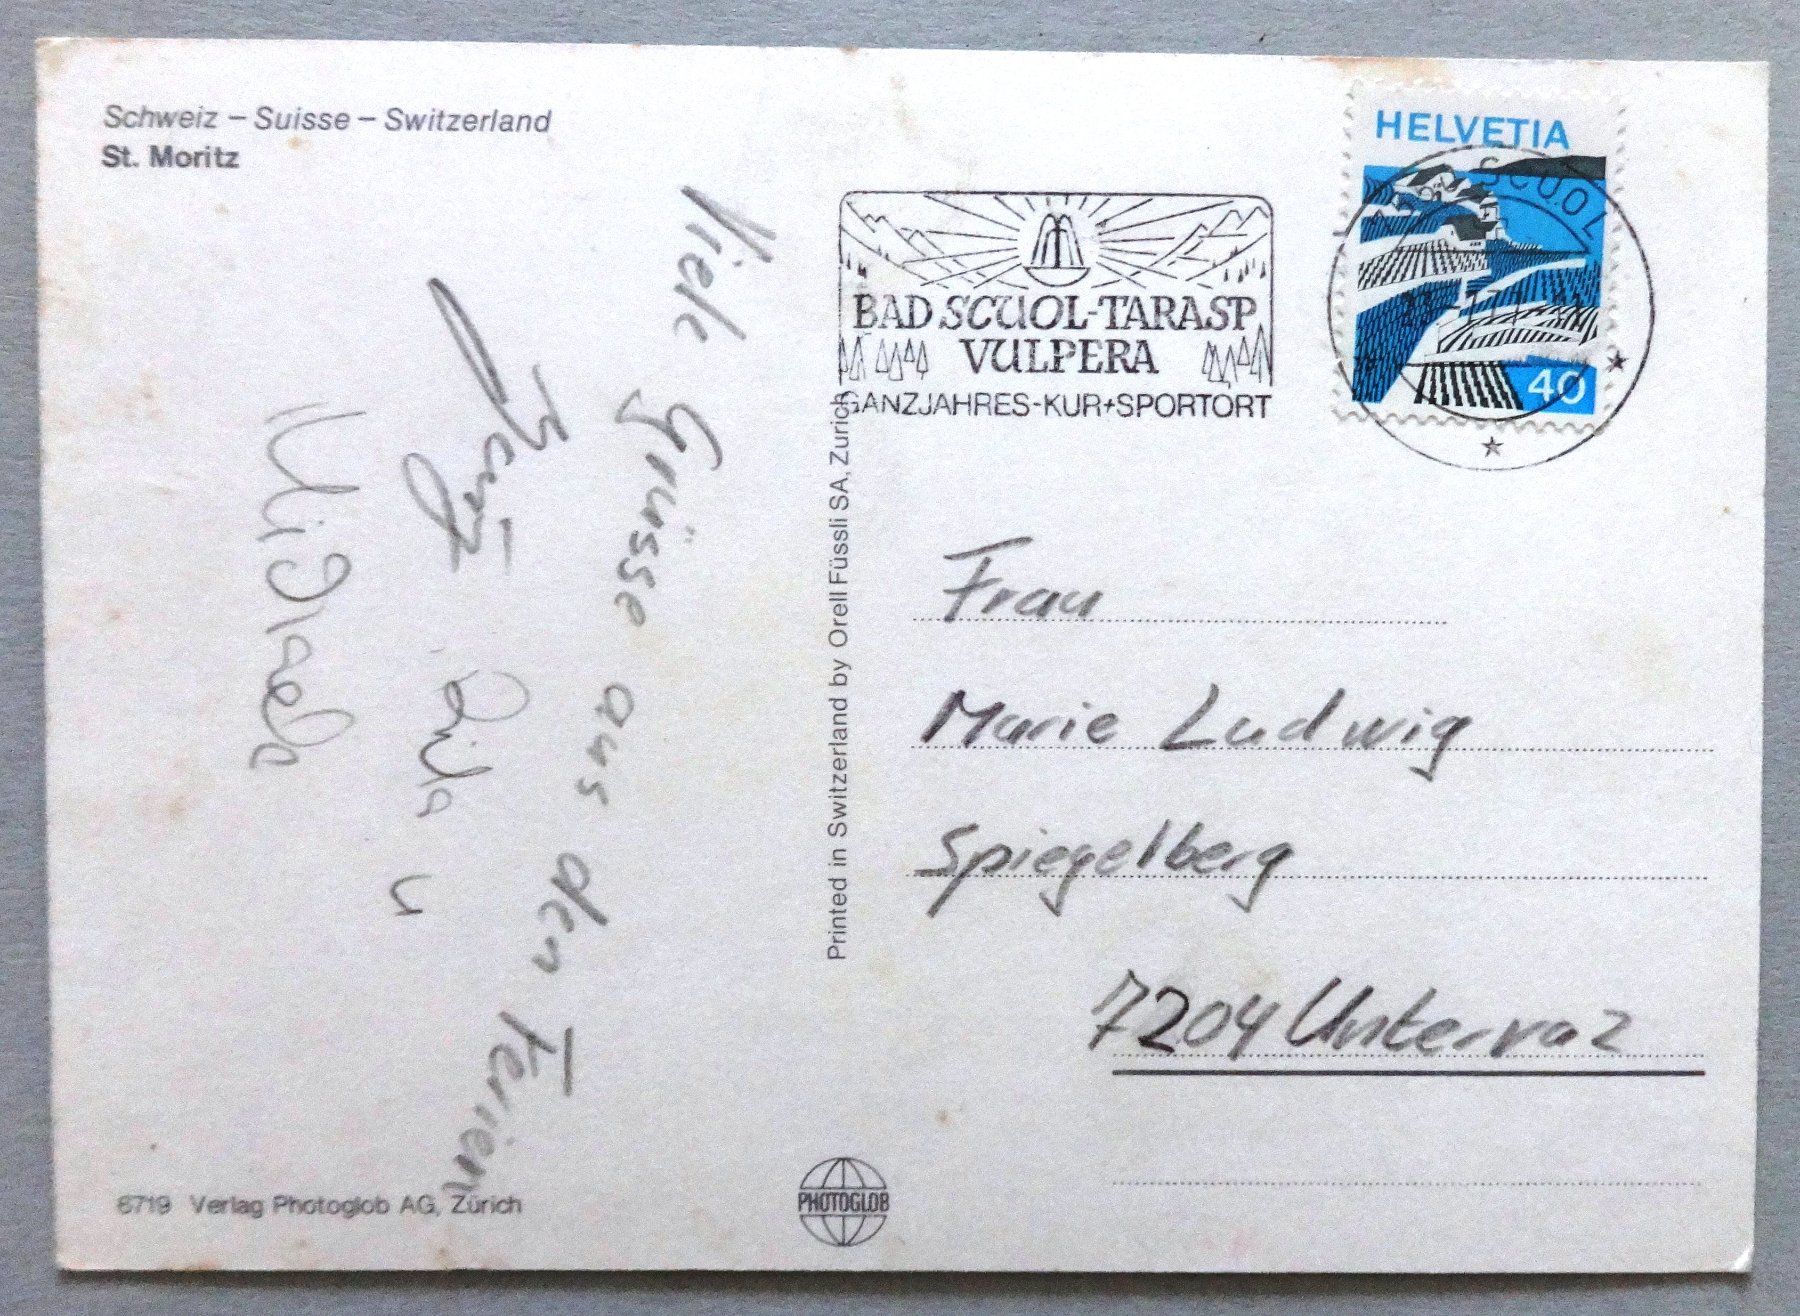 Schweiz – Suisse – Switzerland
St. Moritz
Viele Grüsse aus den Ferien
u
8719 Verlag Photoglob AG, Zürich
Printed in Switzerland by Orell Füssli SA, Zurich
PHOTOGLOB
BAD SCUOL-TARASP
VULPERA
GANZJAHRES-KUR+SPORTORT
HELVETIA
SCUOL
40
Frau
Marie Ludwig
Spiegelberg
7204 Untervaz